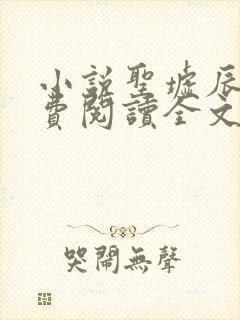 小說聖墟辰
費閱讀全文
哭鬧無聲